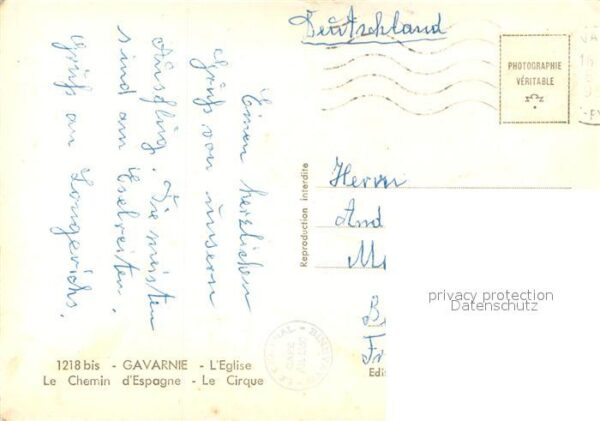 Deutschland
PHOTOGRAPHIE
VÉRITABLE
Einen herzlichen
Gruß von unserm
Ausflug. Die meisten
sind am Eselreiten.
Gruß an Longerichs.
Reproduction interdite
Herrn
And
M
B
Fr
privacy protection
Datenschutz
1218 bis - GAVARNIE - L'Eglise
Le Chemin d'Espagne - Le Cirque
Edit